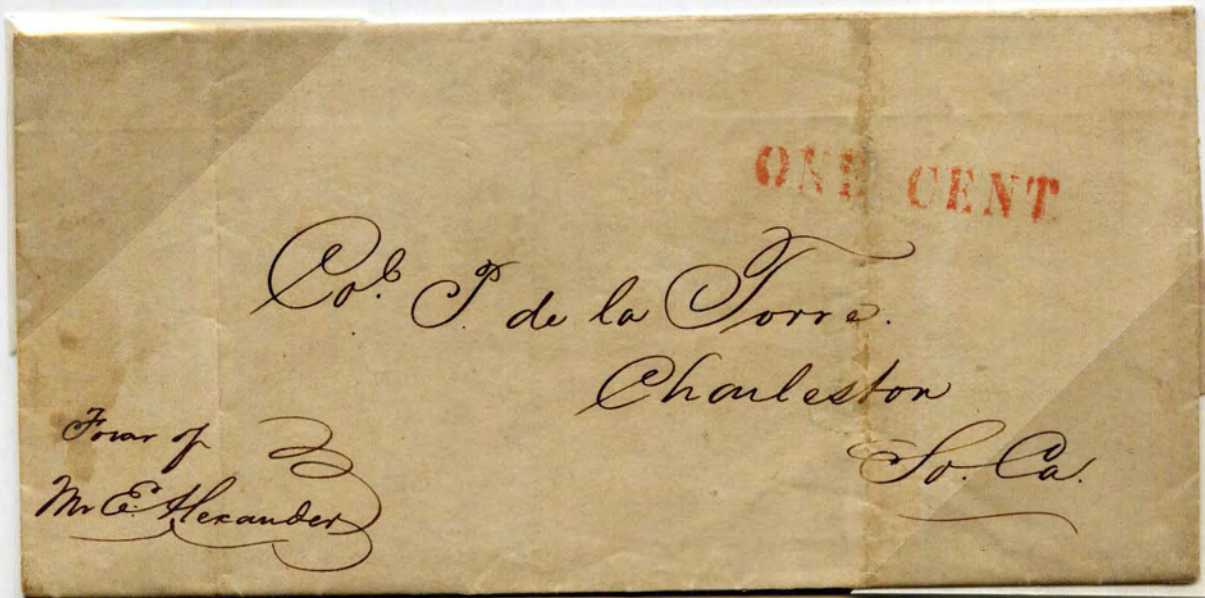 ONE CENT
Col. P. de la Torre.
Charleston
So. Ca.
Favor of
Mr E. Alexander